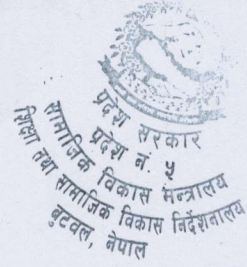 प्रदेश सरकार
प्रदेश नं. ५
सामाजिक विकास मन्त्रालय
शिक्षा तथा सामाजिक विकास निर्देशनालय
बुटवल, नेपाल